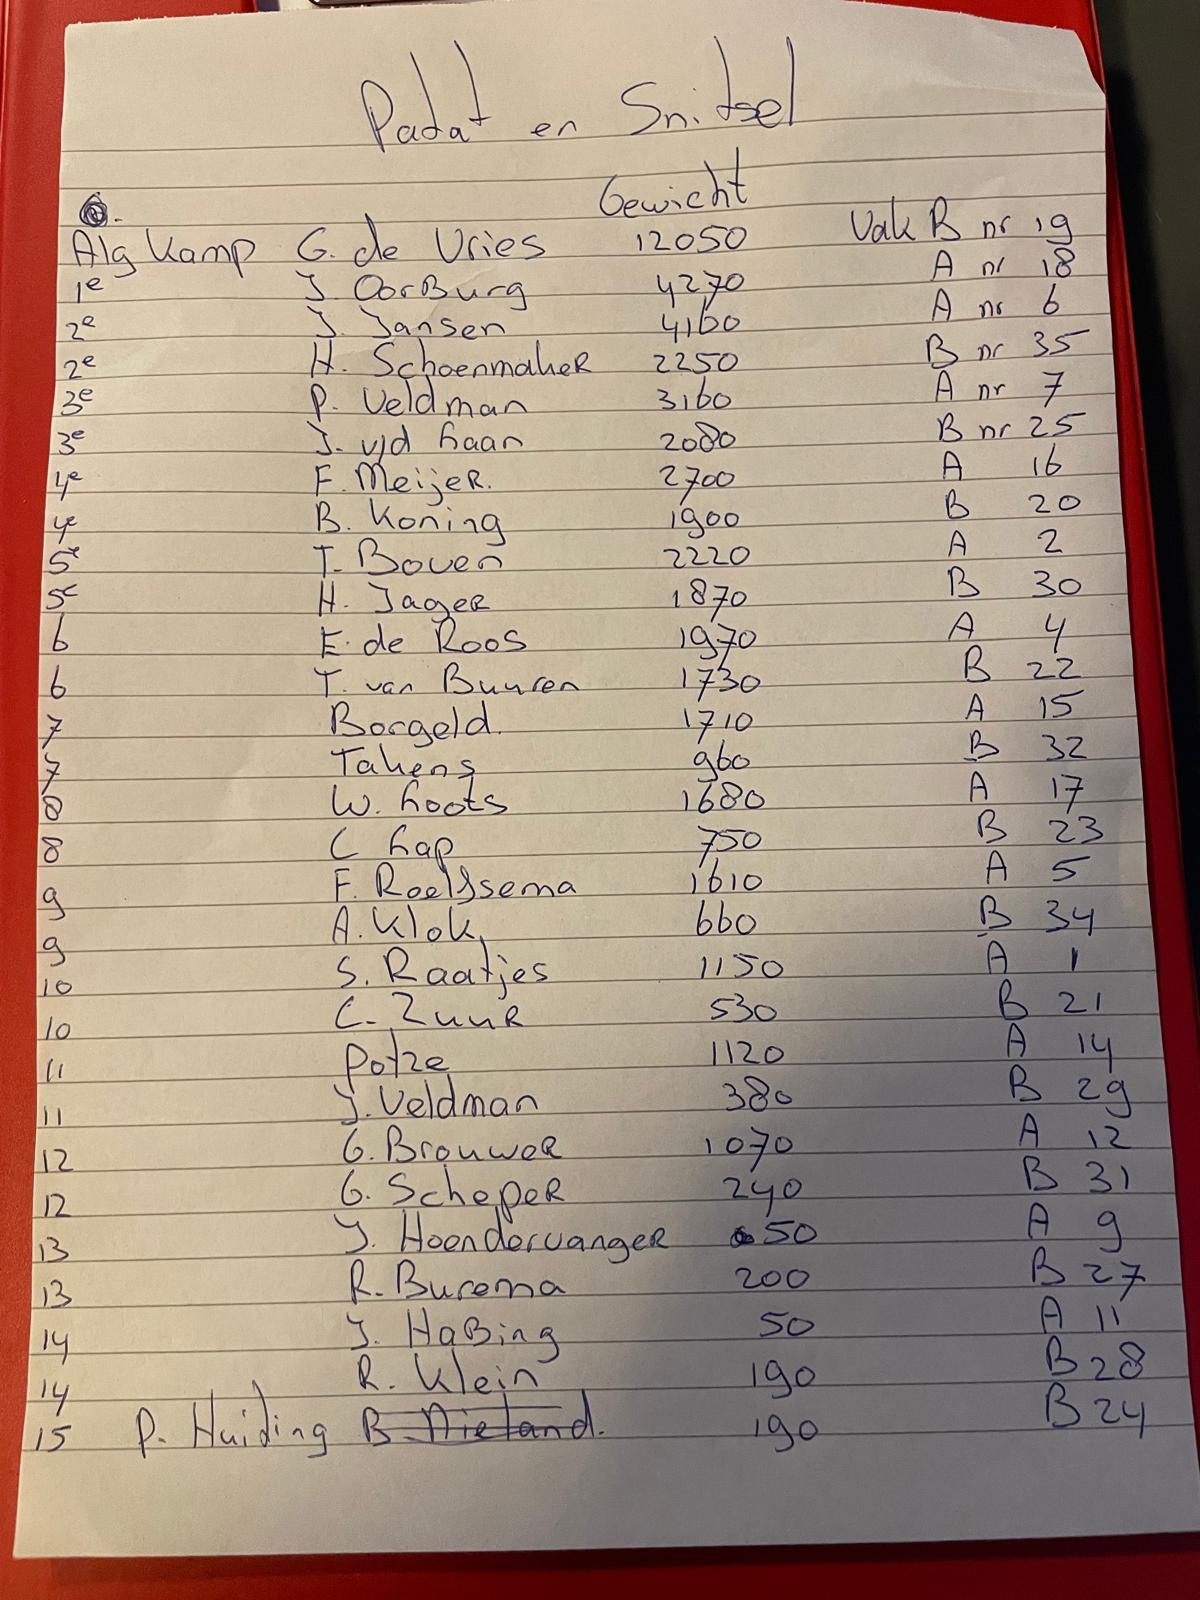 Padat en Snitsel
Gewicht
Alg Kamp G. de Vries 12050 Vak B nr 19
1e J. OorBurg 4270 A nr 18
2e J. Jansen 4160 A nr 6
2e H. Schoenmaker 2250 B nr 35
3e P. Veldman 3160 A nr 7
3e J. v/d haan 2080 B nr 25
4e F. Meijer. 2700 A 16
4e B. Koning 1900 B 20
5e T. Boven 2220 A 2
5e H. Jager 1870 B 30
6 E. de Roos 1970 A 4
6 T. van Buuren 1730 B 22
7 Borgeld. 1710 A 15
7 Takens 960 B 32
8 W. hoots 1680 A 17
8 C hap 750 B 23
9 F. Roelfsema 1610 A 5
9 A. Klok 660 B 34
10 S. Raatjes 1150 A 1
10 C. Zuur 530 B 21
11 Potze 1120 A 14
11 J. Veldman 380 B 29
12 G. Brouwer 1070 A 12
12 G. Scheper 240 B 31
13 J. Hoendervanger 50 A 9
13 R. Burema 200 B 27
14 J. HaBing 50 A 11
14 R. Klein 190 B 28
15 P. Huiding B. Nieland. 190 B 24